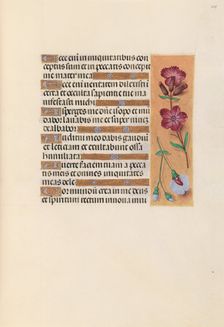 Ecce eni in iniquitatibus con
ceptus sum et in peccatis concepit
me mater mea
Ecce eni veritatem dilexisti
certa et occulta sapientie tue ma
nifestasti michi
Asperges me dne ysopo et mun
dabor lavabis me et super nivem
dealbabor
Auditui meo dabis gaudium
et leticiam et exultabunt ossa
humiliata
Averte faciem tuam a pecca
tis meis et omnes iniquitates
meas dele
Cor mundum crea in me deus
et spiritum rectum innova in